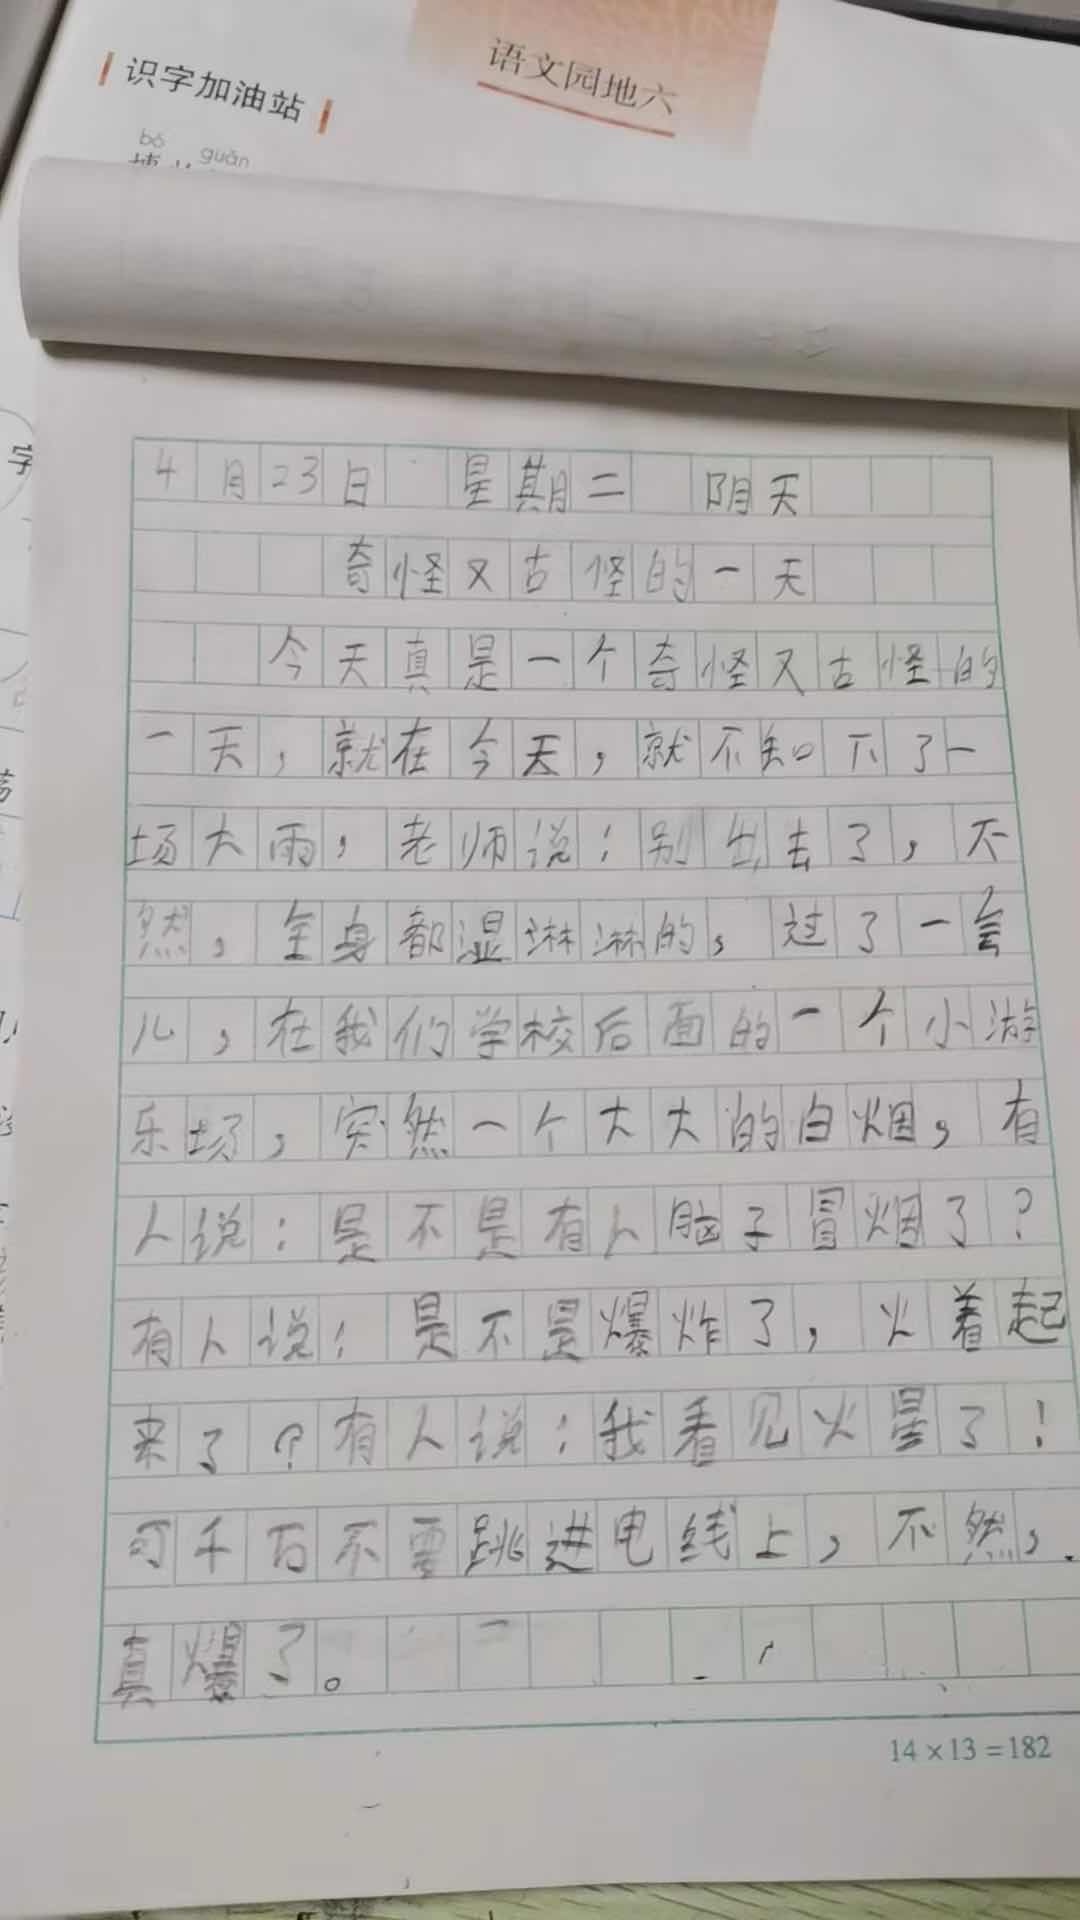 语文园地六
识字加油站
bó guǎn
4月23日 星期二 阴天
奇怪又古怪的一天
今天真是一个奇怪又古怪的
一天，就在今天，就不知下了一
场大雨，老师说：别出去了，不
然，全身都湿淋淋的，过了一会
儿，在我们学校后面的一个小游
乐场，突然一个大大的白烟，有
人说：是不是有人脑子冒烟了？
有人说：是不是爆炸了，火着起
来了？有人说：我看见火星了！
可千万不要跳进电线上，不然，
真爆了。
14×13=182